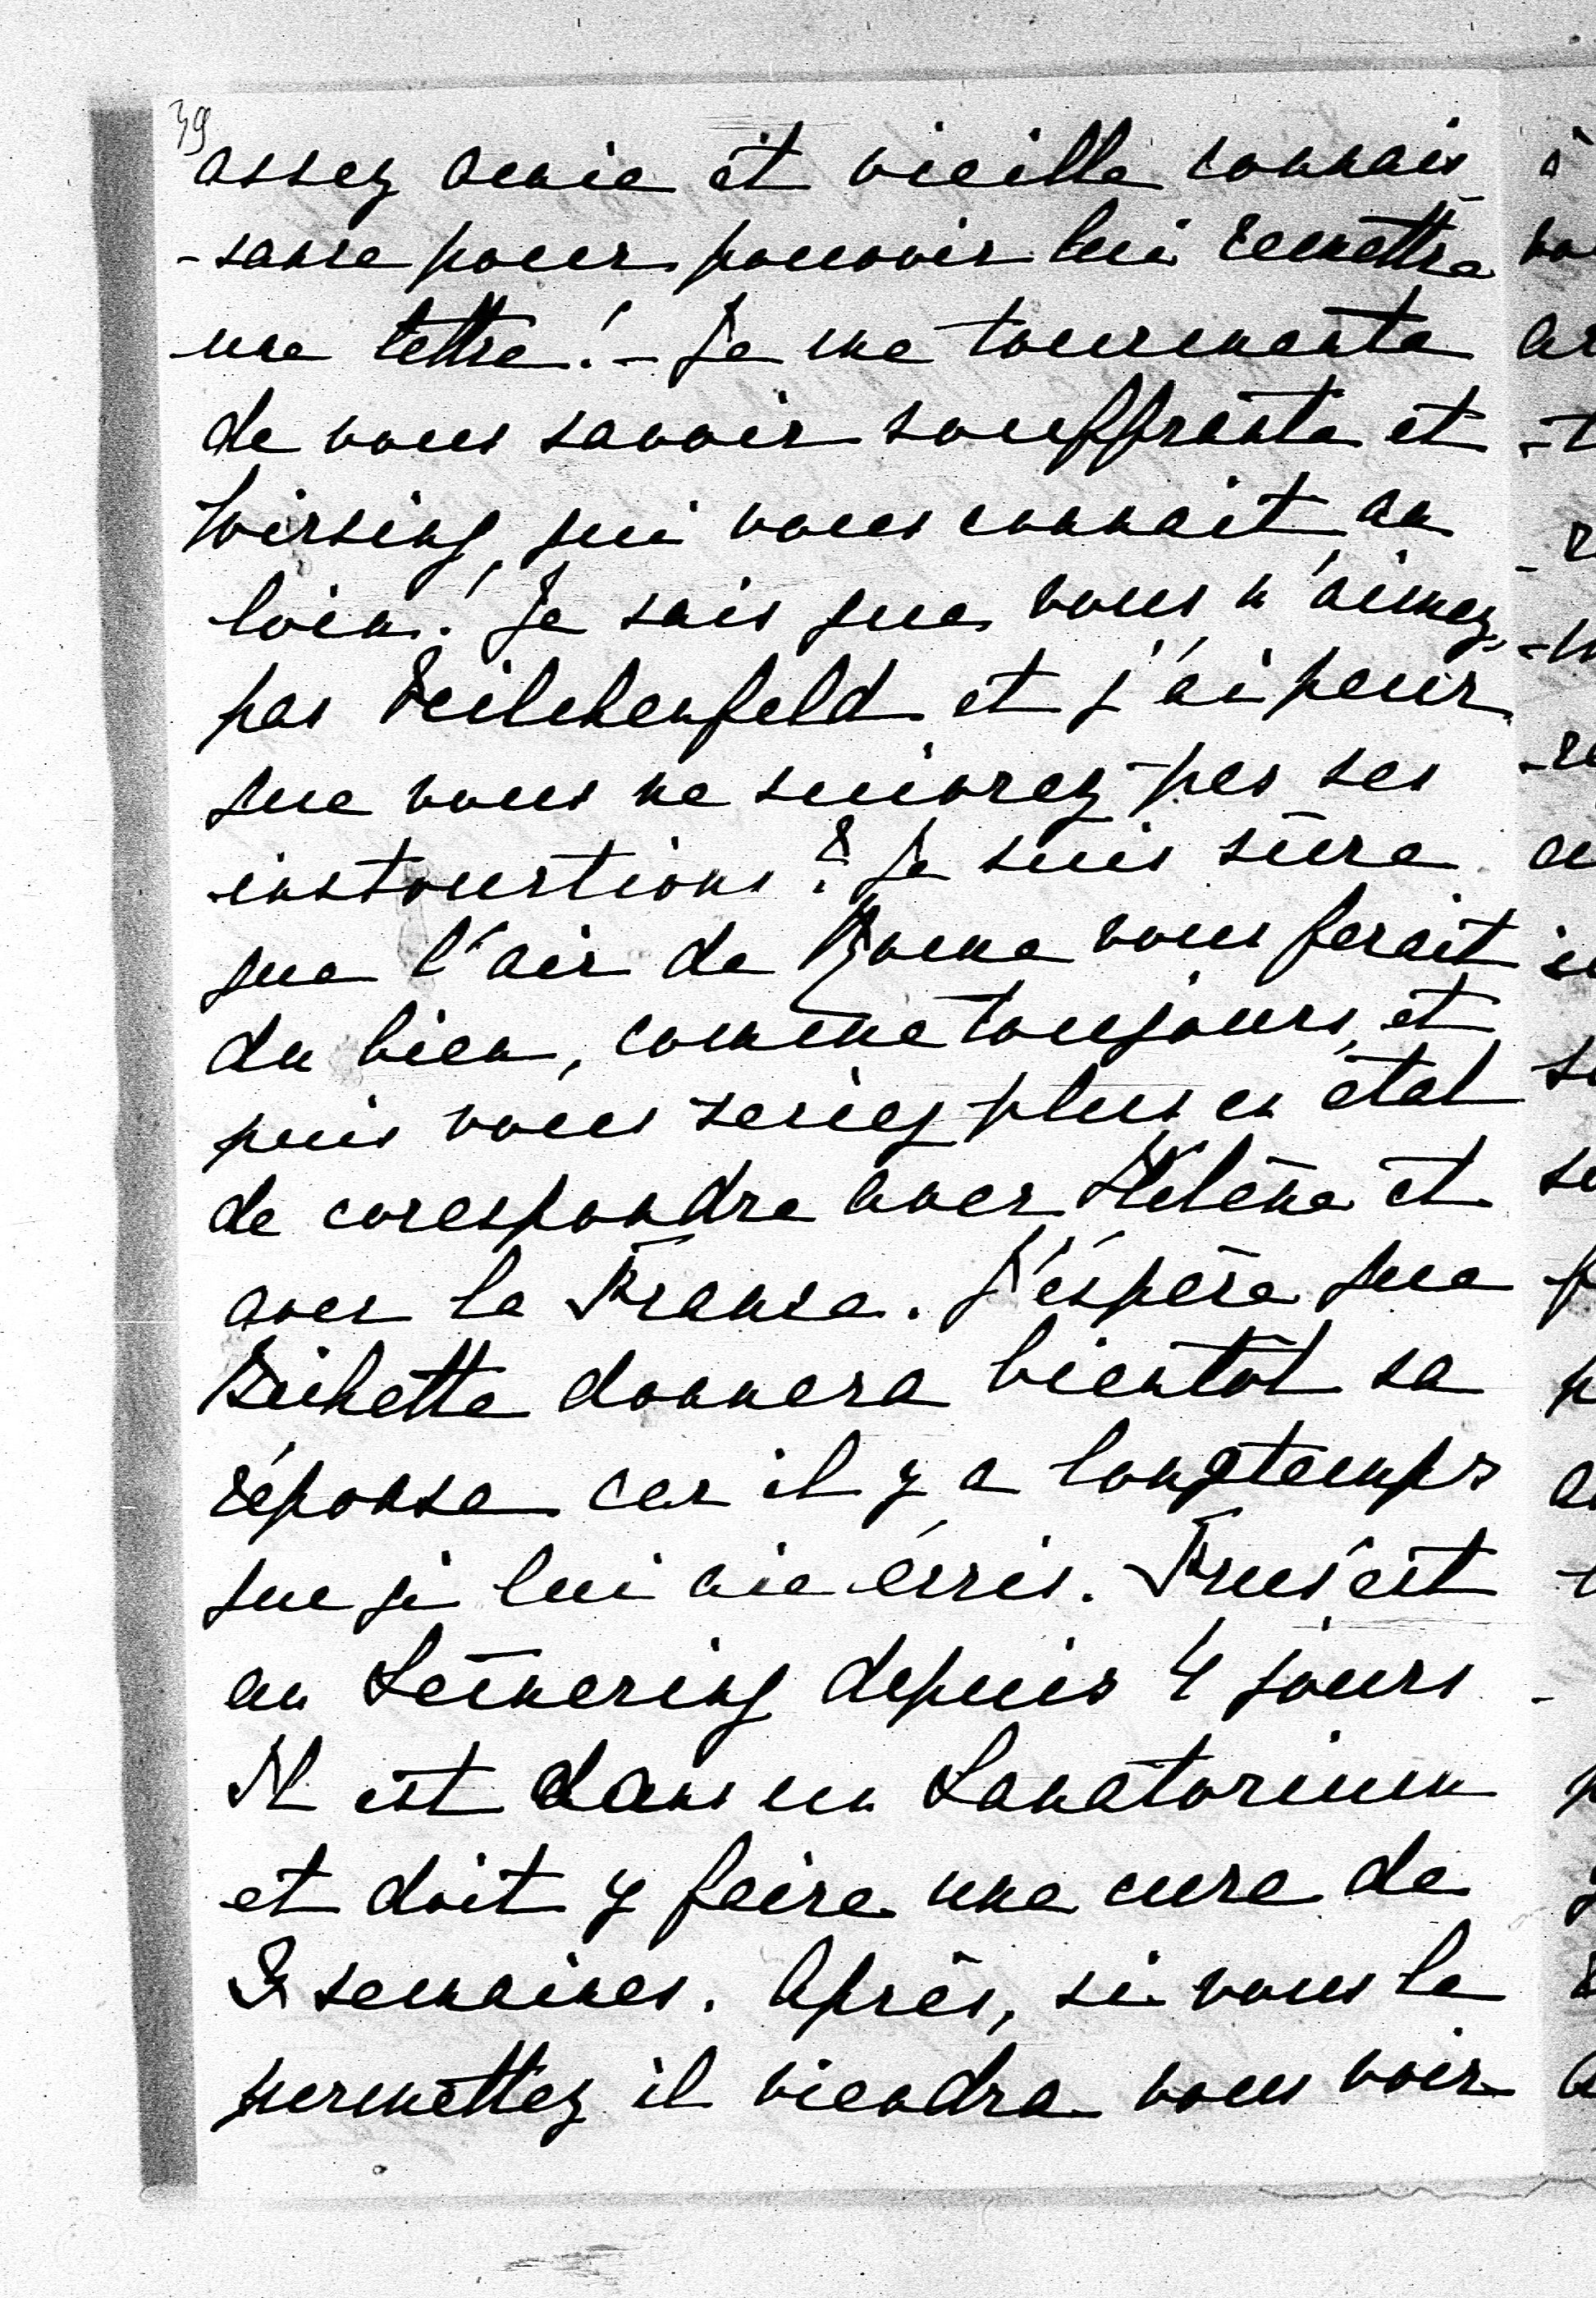 39
assez amie et vieille connais
-sance pour pouvoir lui remettre
une lettre! - Je me tourmente
de vous savoir souffrante et
Wirsing, qui vous connait, au
loin! Je sais que vous n'aimez
pas Veilchenfeld et j'ai peur
que vous ne suivrez pas ses
instructions? Je suis sûre
que l'air de Rome vous ferait
du bien, comme toujours, et
puis vous seriez plus en état
de corespondre avec Hélène et
avec la France. J'éspère que
donnera bientôt sa
réponse car il y a longtemps
que je lui aie écris. est
au Semering depuis 4 jours
Il est dans un Sanatorium
et doit y faire une cure de
semaines. Après, si vous le
permettez il viendra vous voir